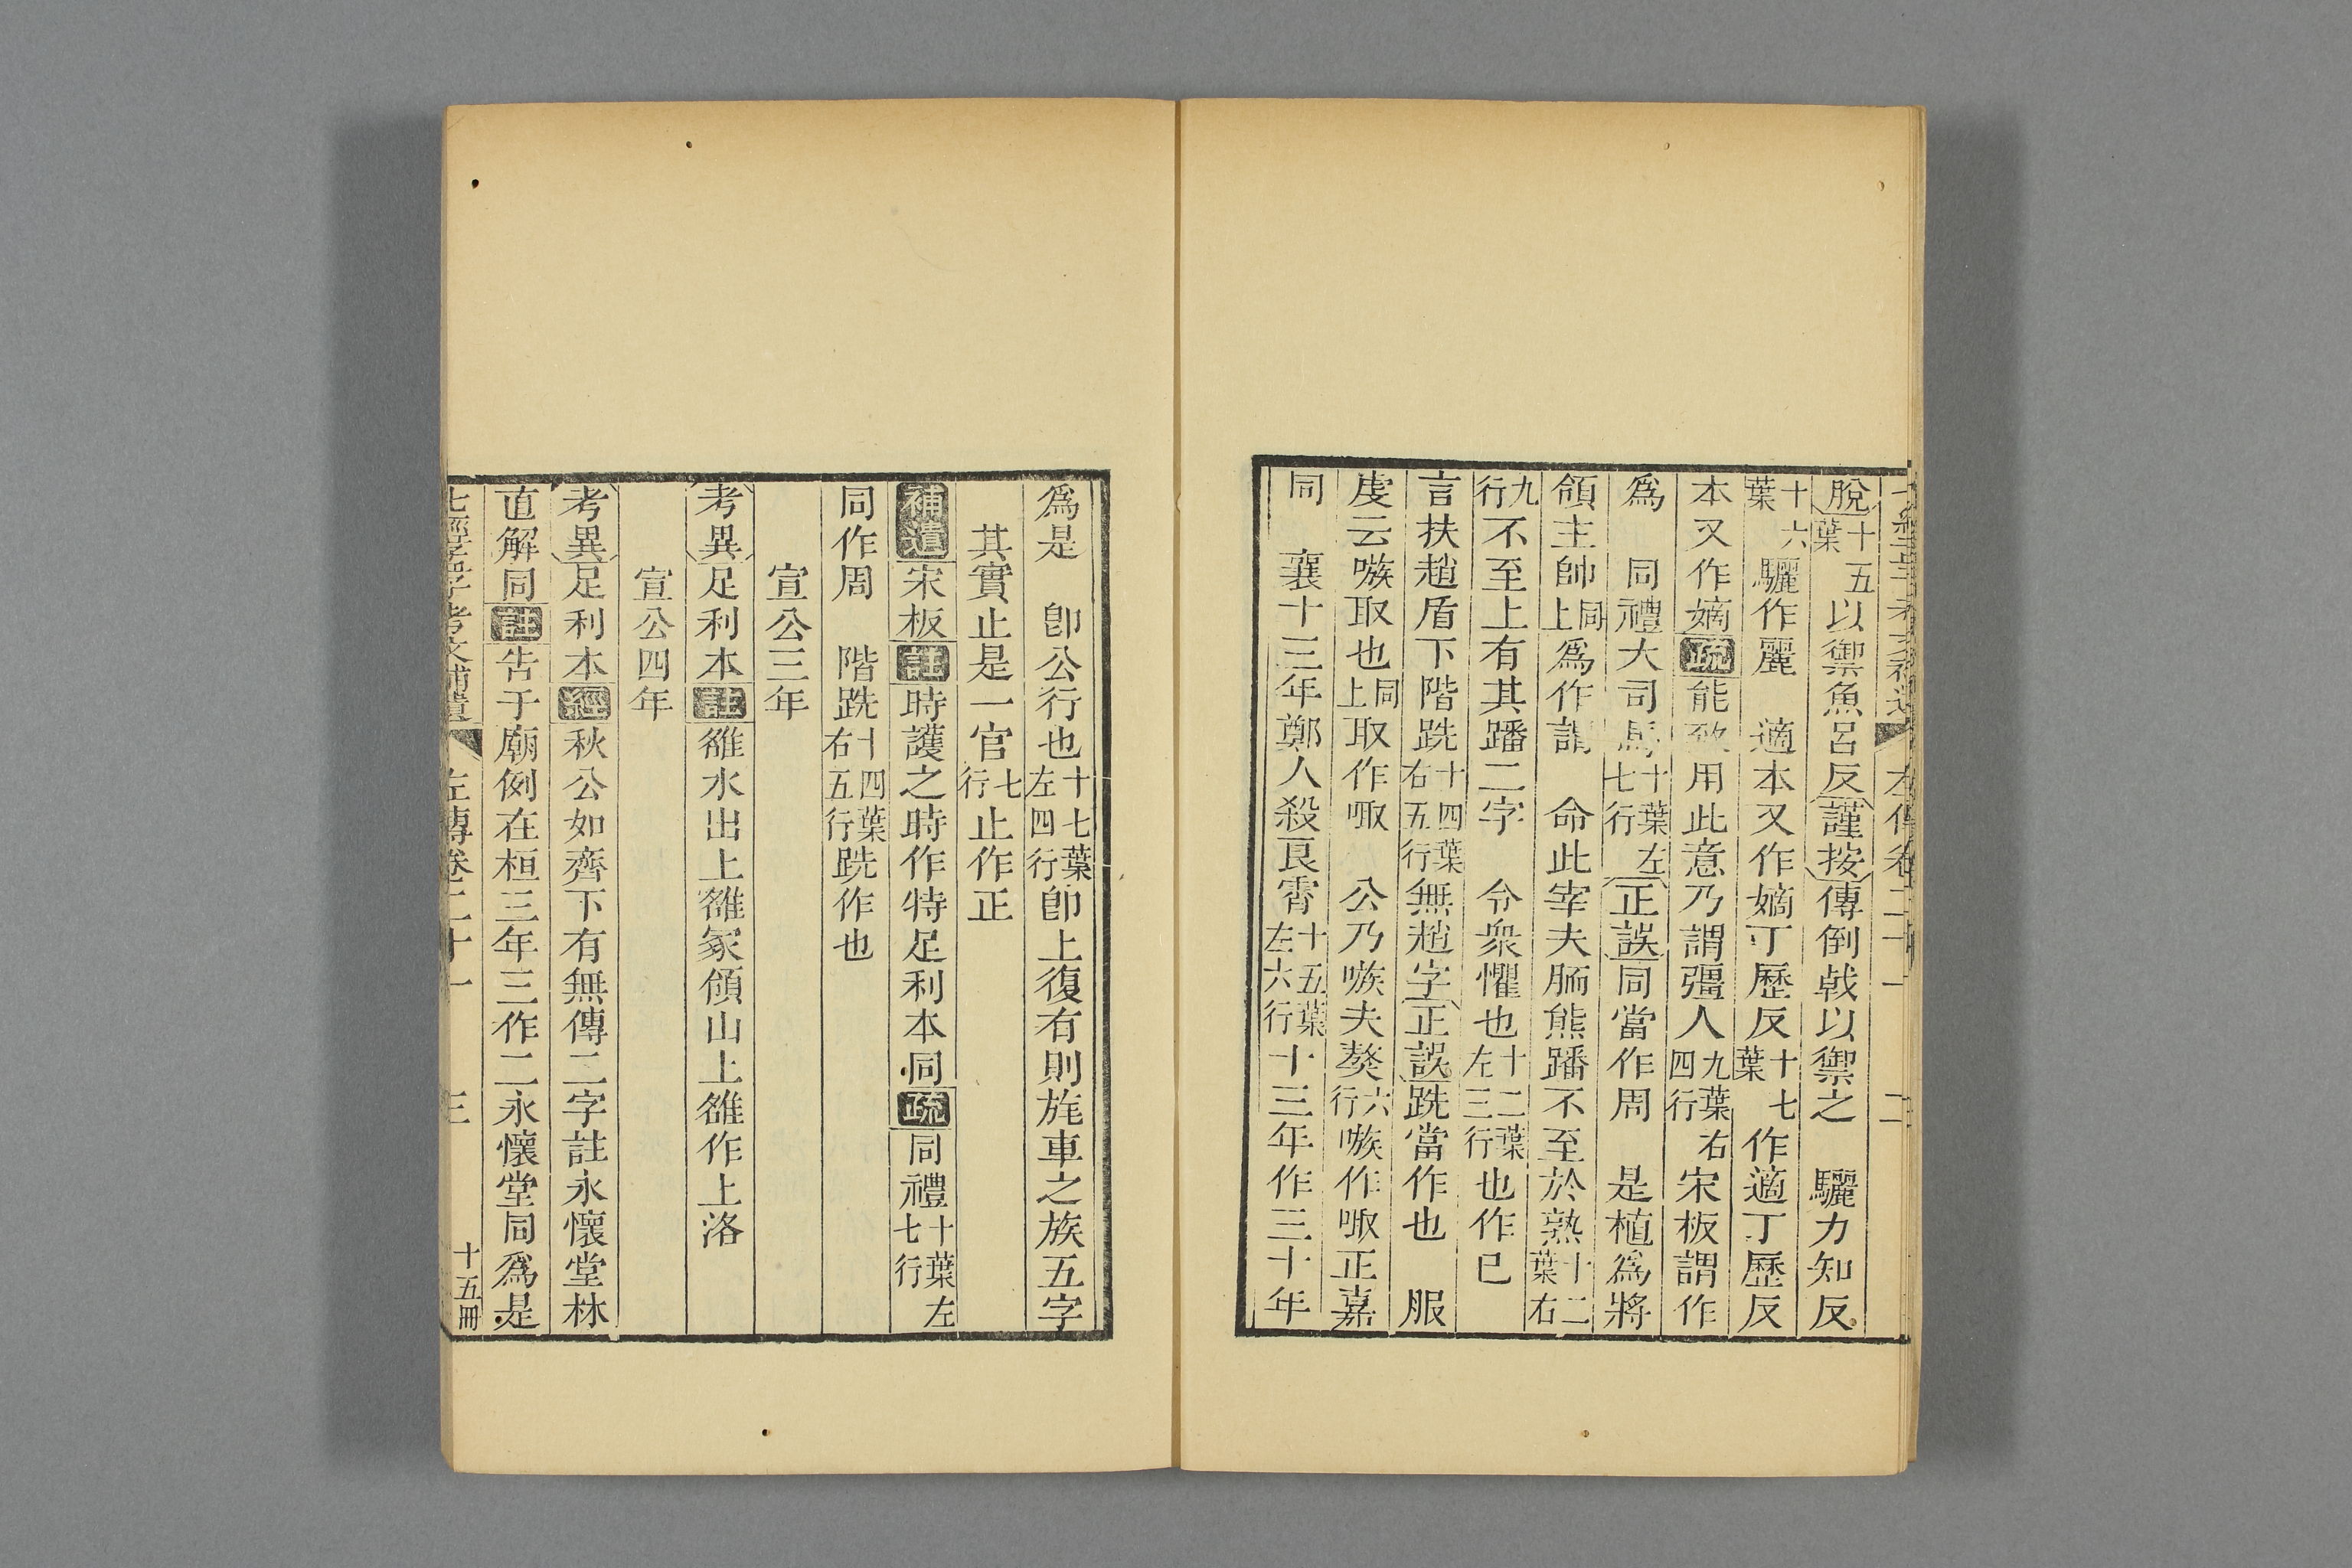 脫十五葉以禦魚呂反謹按傳倒戟以禦之　驪力知反
十六葉驪作麗　適本又作嫡丁歷反十七葉作適丁歷反
本又作嫡疏能致用此意乃謂彊人九葉右四行宋板謂作
爲　同禮大司馬十葉左七行正誤同當作周　是植爲將
領主帥同上爲作謂　命此宰夫胹熊蹯不至於熟十二葉右
九行不至上有其蹯二字　令衆懼也十二葉左三行也作已
言扶趙盾下階跣十四葉右五行無趙字正誤跣當作也　服
虔云嗾取也同上取作㖩　公乃嗾夫獒六行嗾作㖩正嘉
同　襄十三年鄭人殺良霄十五葉左六行十三年作三十年
爲是　卽公行也十七葉左四行卽上復有則旄車之族五字
其實止是一官七行止作正
補遺宋板註時護之時作特足利本同疏同禮十葉左七行
同作周　階跣十四葉右五行跣作也
宣公三年
考異足利本註雒水出上雒冢領山上雒作上洛
宣公四年
考異足利本經秋公如齊下有無傳二字註永懷堂林
直解同註告于廟例在桓三年三作二永懷堂同爲是
七經孟子考文補遺　左傳卷二十一　三　十五冊